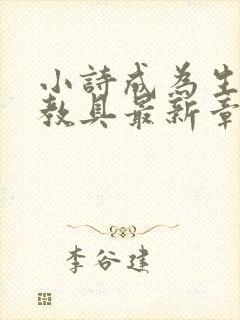 小詩成為生
教具最新章
李谷建